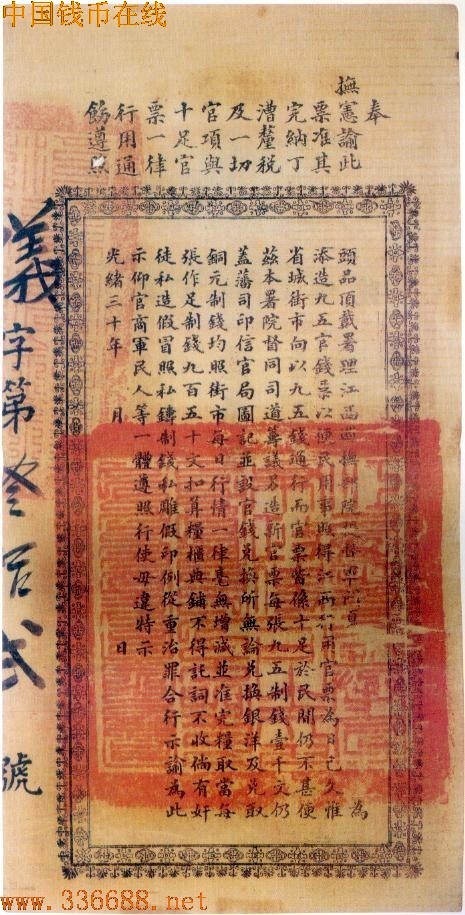 中国钱币在线
奉
撫憲諭此
票准其
完納丁
漕釐稅
及一切
官項與
十足官
票一律
行用通
飭遵照
頭品頂戴署理江西巡撫部院提督軍門夏 為
添造九五官錢票以便民用事照得江西行用官票為日已久惟
省城街市向以九五錢通行而官票嘗係十足於民間仍不甚便
茲本署院督同司道籌議另造新官票每張九五制錢壹千文仍
蓋藩司印信官局圖記並設官錢兌換所無論兌換銀洋及兌取
銅元制錢均照街市每日行情一律毫無增減並准完糧取當每
張作足制錢九百五十文扣算糧櫃典鋪不得託詞不收倘有奸
徒私造假冒照私鑄制錢私雕假印例從重治罪合行示諭為此
示仰官商軍民人等一體遵照行使毋違特示
光緒三十年 月 日
義字第叁百弍號
www.336688.net